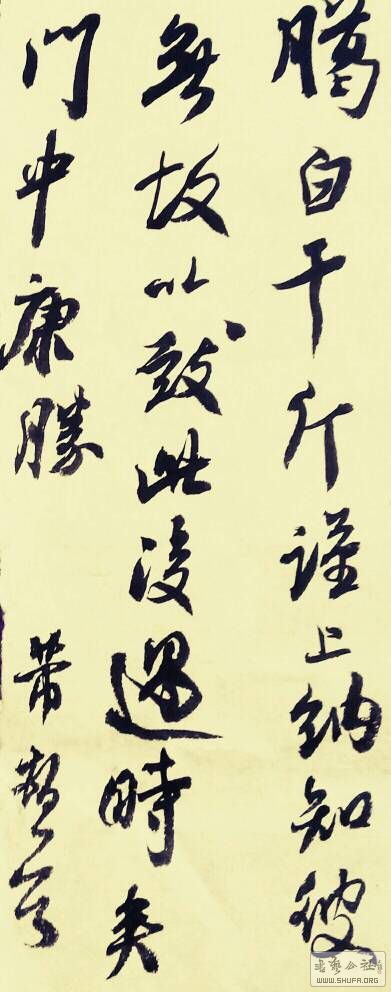 白千斤謹上納知彼
無故以致此遇時矣
門中康勝 芾
书艺公社
WWW.SHUFA.ORG